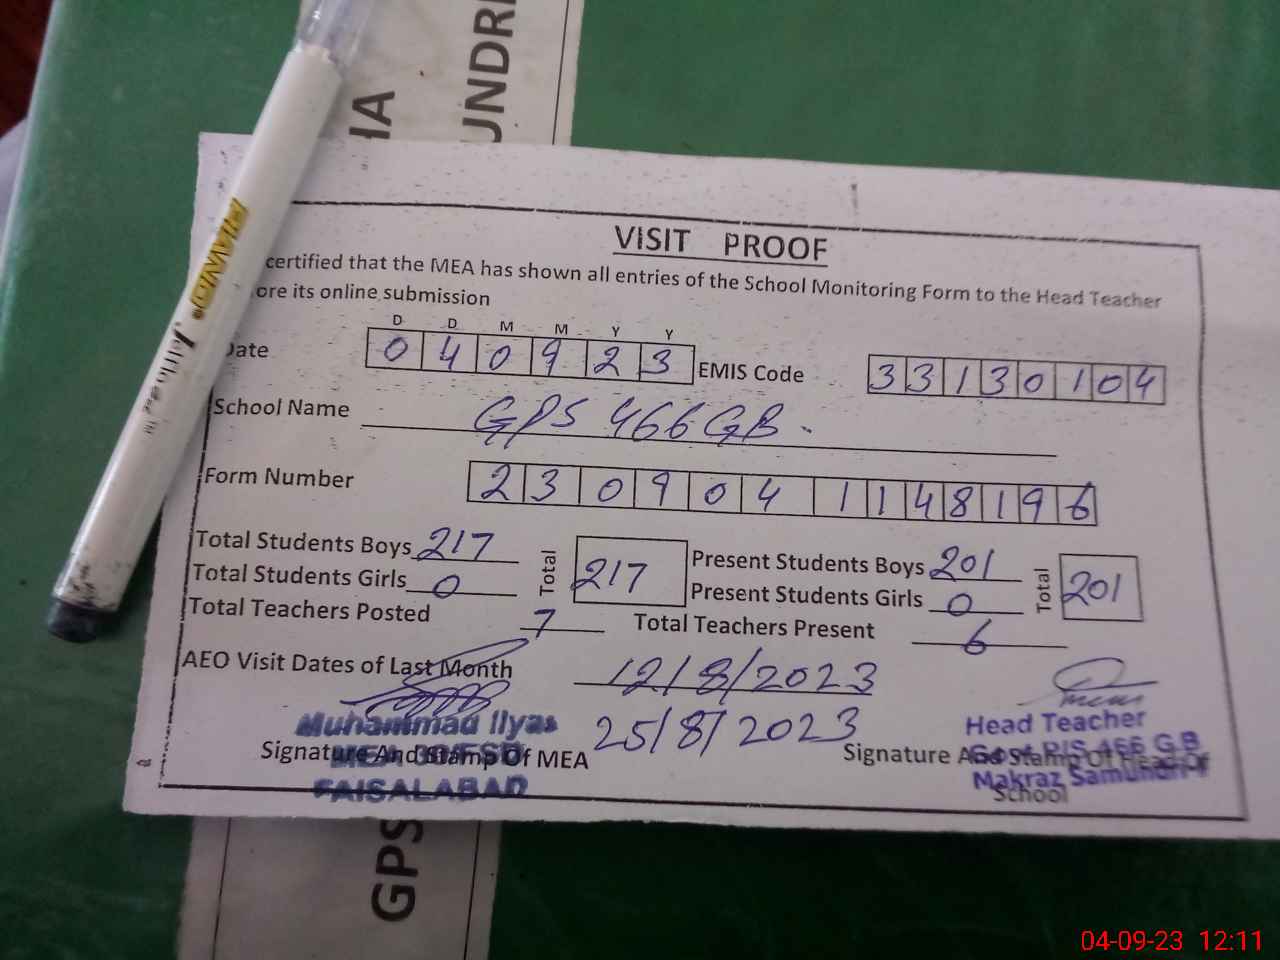 HA
UNDRI
VISIT PROOF
certified that the MEA has shown all entries of the School Monitoring Form to the Head Teacher
ore its online submission
D D M M Y Y
Date 0 4 0 9 2 3 EMIS Code 3 3 1 3 0 1 0 4
School Name GPS 466 GB.
Form Number 2 3 0 9 0 4 1 1 4 8 1 9 6
Total Students Boys 217 Total 217 Present Students Boys 201 Total 201
Total Students Girls 0 Present Students Girls 0
Total Teachers Posted 7 Total Teachers Present 6
AEO Visit Dates of Last Month 12/8/2023
25/8/2023
Muhammad Ilyas
Signature And Stamp Of MEA
FAISALABAD
Head Teacher
Signature And Stamp Of Head Of
School
466 G.B
Makraz Samundri-I
GPS
PIANO
04-09-23 12:11